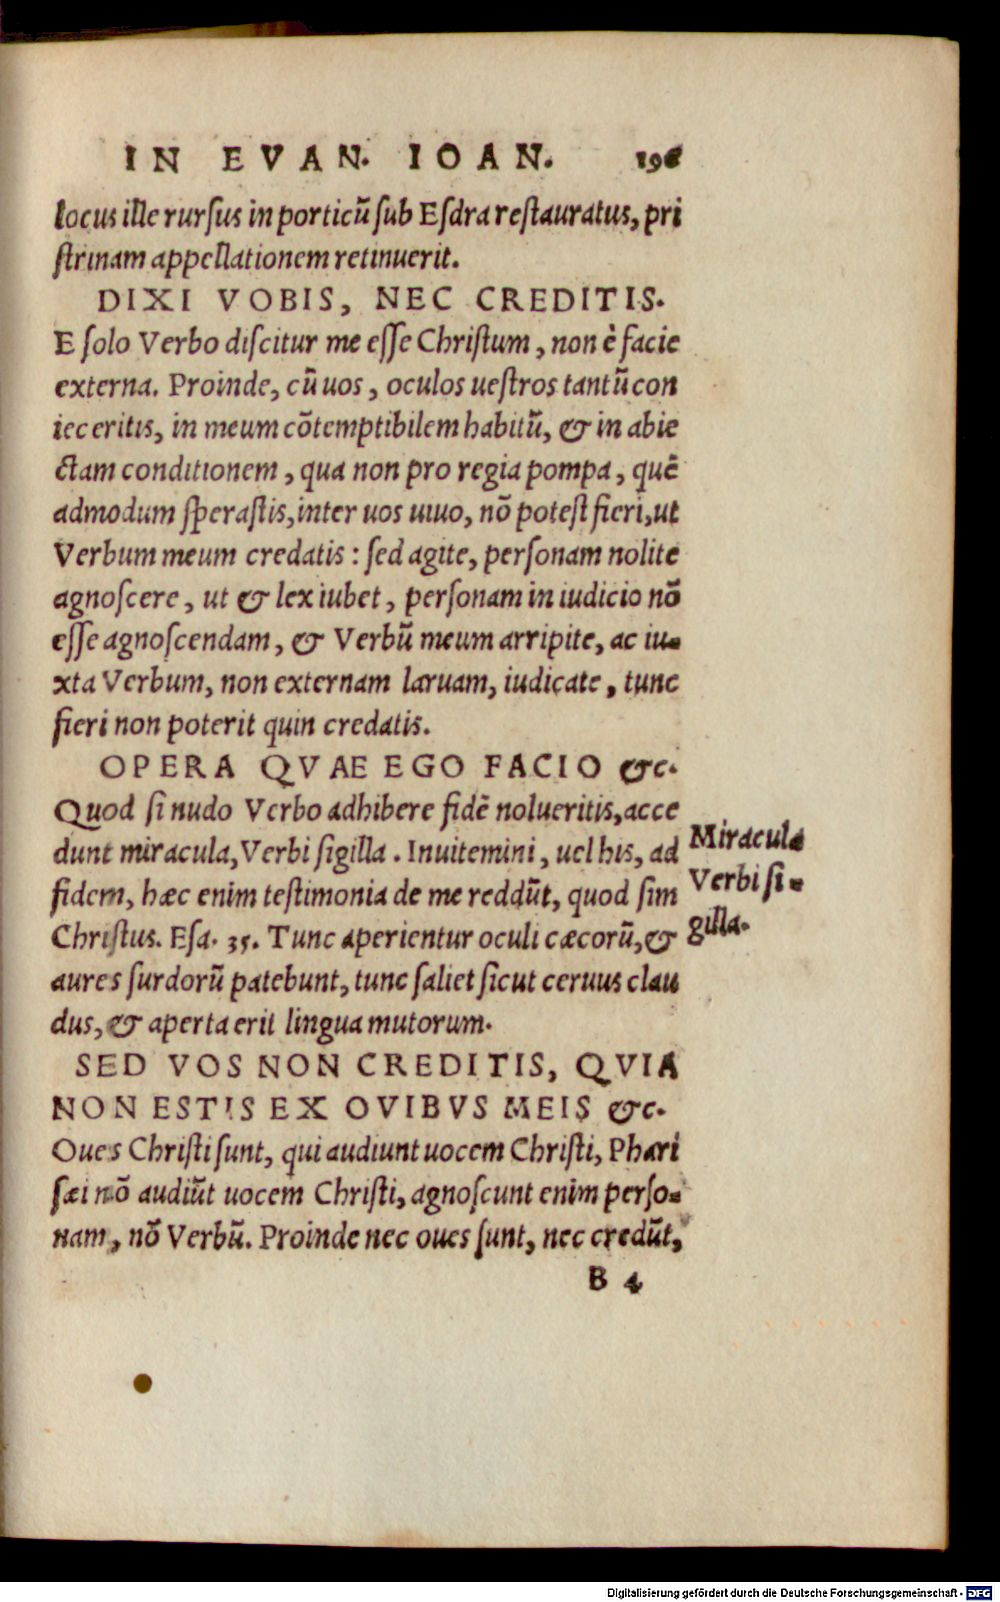 IN EVAN. IOAN. 196
locus ille rursus in porticũ sub Esdra restauratus, pri
strinam appellationem retinuerit.
DIXI VOBIS, NEC CREDITIS.
E solo Verbo discitur me esse Christum, non è facie
externa. Proinde, cũ uos, oculos uestros tantũ con
ieceritis, in meum cõtemptibilem habitũ, & in abie
ctam conditionem, qua non pro regia pompa, quẽ
admodum sperastis, inter uos uiuo, nõ potest fieri, ut
Verbum meum credatis: sed agite, personam nolite
agnoscere, ut & lex iubet, personam in iudicio nõ
esse agnoscendam, & Verbũ meum arripite, ac iu-
xta Verbum, non externam laruam, iudicate, tunc
fieri non poterit quin credatis.
OPERA QVAE EGO FACIO &c.
Quod si nudo Verbo adhibere fidẽ nolueritis, acce
dunt miracula, Verbi sigilla. Inuitemini, uel his, ad
fidem, hæc enim testimonia de me reddũt, quod sim
Christus. Esa. 35. Tunc aperientur oculi cæcorũ, &
aures surdorũ patebunt, tunc saliet sicut ceruus clau
dus, & aperta erit lingua mutorum.
SED VOS NON CREDITIS, QVIA
NON ESTIS EX OVIBVS MEIS &c.
Oues Christi sunt, qui audiunt uocem Christi, Phari
sæi nõ audiũt uocem Christi, agnoscunt enim perso-
nam, nõ Verbũ. Proinde nec oues sunt, nec credũt,
B 4
Miracula
Verbi si-
gilla.
Digitalisierung gefördert durch die Deutsche Forschungsgemeinschaft - DFG